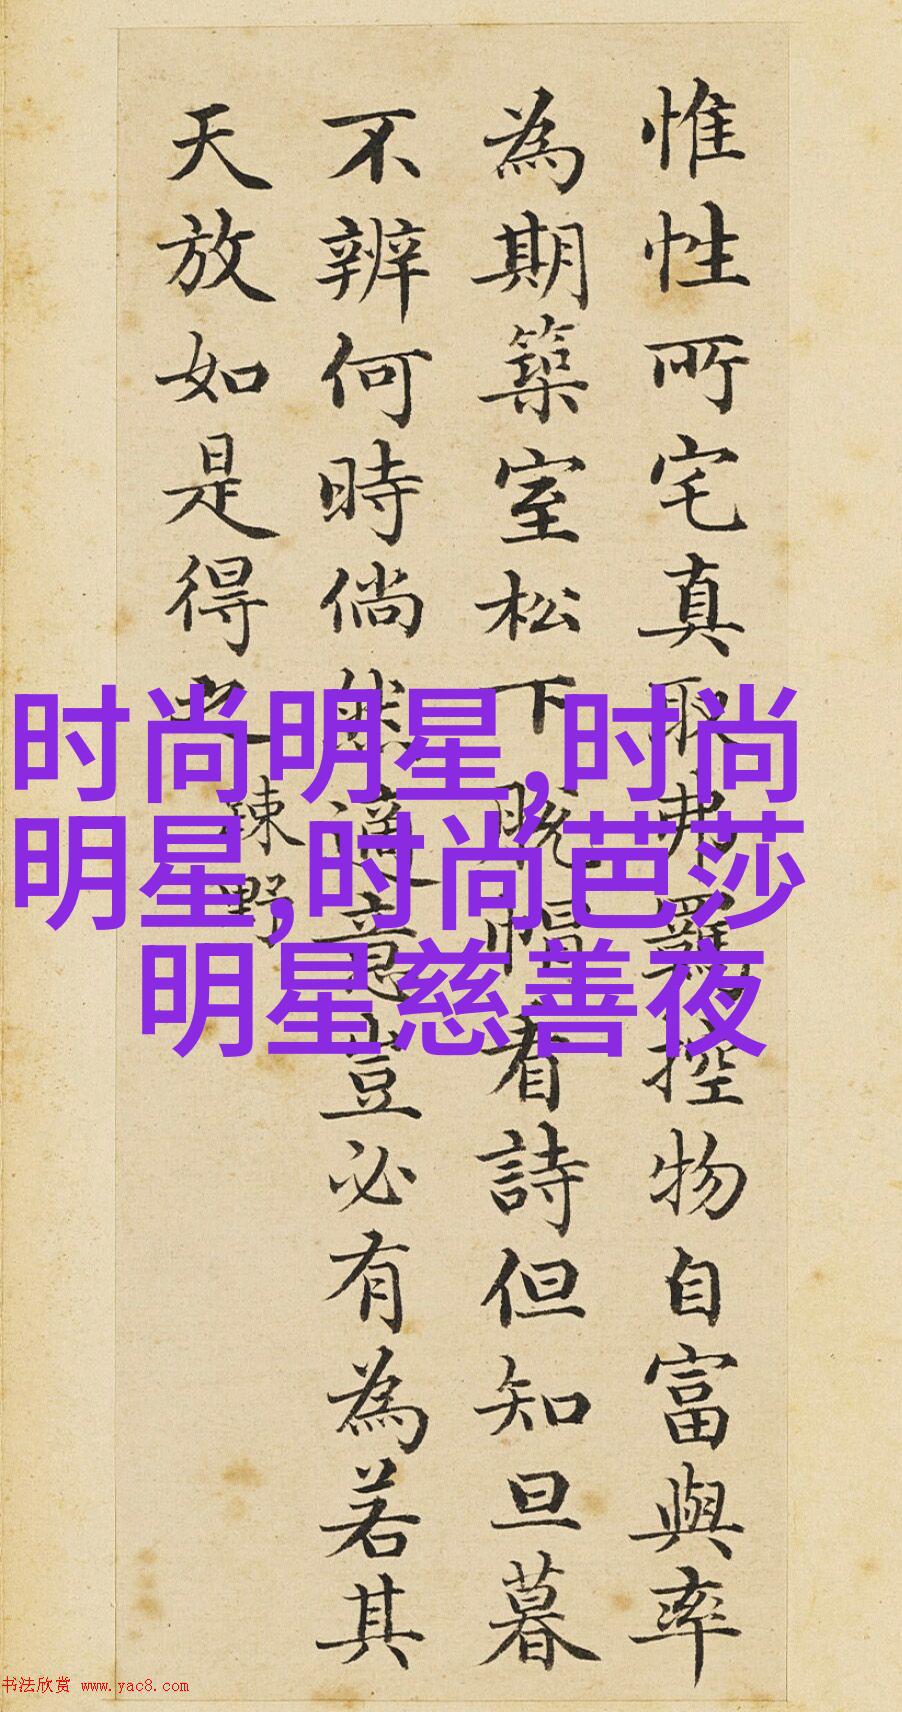 惟性所宅真取弗羈控物自富與率
為期築室松下脫帽看詩但知旦暮
不辨何時倘然適意豈必有為若其
天放如是得之 疎野
时尚明星,时尚
明星,时尚芭莎
明星慈善夜
书法欣赏 www.yac8.com